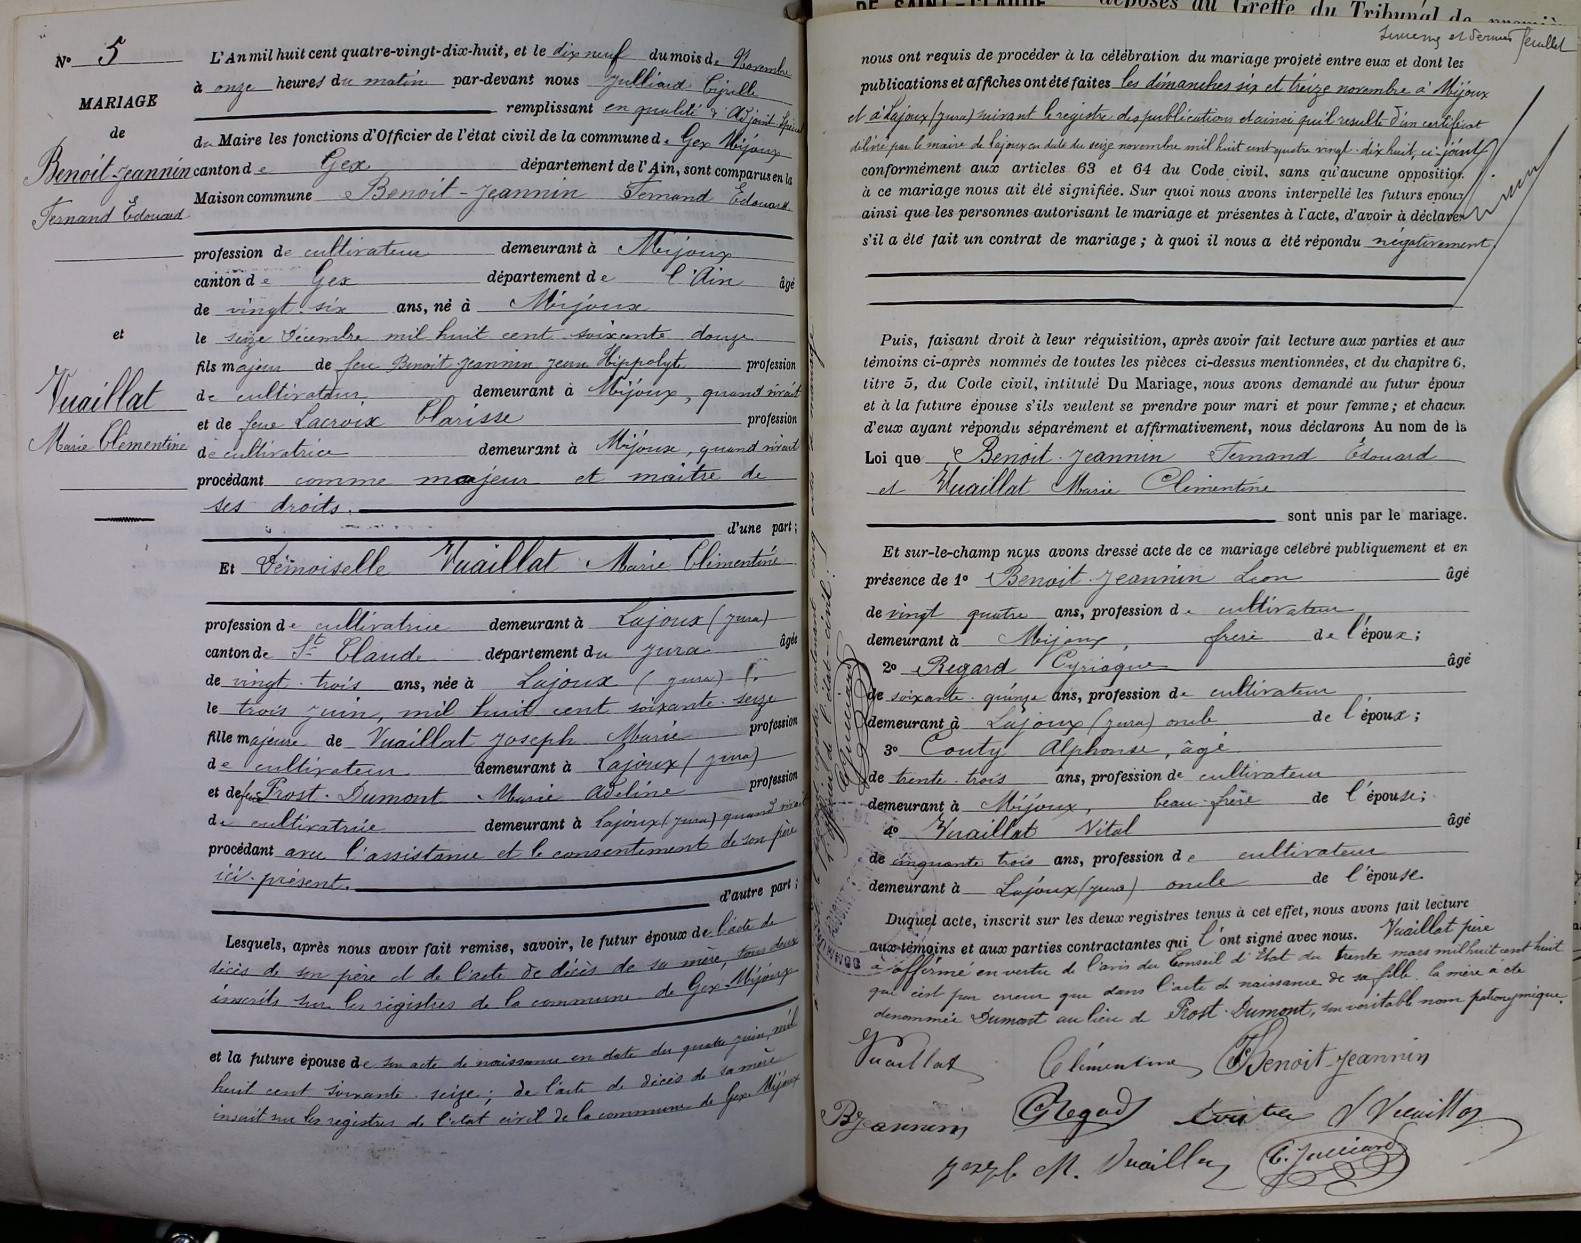 N° 5
MARIAGE
de
Benoit-Jeannin
Fernand Edouard
et
Vuaillat
Marie Clémentine
L'An mil huit cent quatre-vingt-dix-huit, et le dix neuf du mois de Novembre
à onze heures du matin par-devant nous Julliard Cyrille
remplissant en qualité d'Adjoint Spécial
du Maire les fonctions d'Officier de l'état civil de la commune de Gex Mijoux
canton de Gex département de l'Ain, sont comparus en la
Maison commune Benoit-Jeannin Fernand Edouard
profession de cultivateur demeurant à Mijoux
canton de Gex département de l'Ain âgé
de vingt-six ans, né à Mijoux
le seize Décembre mil huit cent soixante douze
fils majeur de feu Benoit-Jeannin Jean Hippolyte profession
de cultivateur demeurant à Mijoux, quand vivait
et de feue Lacroix Clarisse profession
de cultivatrice demeurant à Mijoux, quand vivait
procédant comme majeur et maître de
ses droits.
d'une part;
Et Demoiselle Vuaillat Marie Clémentine
profession de cultivatrice demeurant à Lajoux (Jura)
canton de St Claude département du Jura âgée
de vingt-trois ans, née à Lajoux (Jura)
le trois juin, mil huit cent soixante-seize
fille majeure de Vuaillat Joseph Marie profession
de cultivateur demeurant à Lajoux (Jura)
et de feue Prost-Dumont Marie Adeline profession
de cultivatrice demeurant à Lajoux (Jura) quand vivait
procédant avec l'assistance et le consentement de son père
ici présent.
d'autre part;
Lesquels, après nous avoir fait remise, savoir, le futur époux de l'acte de
décès de son père et de l'acte de décès de sa mère, tous deux
inscrits sur les registres de la commune de Gex-Mijoux
et la future épouse de son acte de naissance en date du quatre juin mil
huit cent soixante-seize; de l'acte de décès de sa mère
inscrit sur les registres de l'état civil de la commune de Gex Mijoux
DE SAINT-CLAUDE déposés au Greffe du Tribunal de
et dernier feuillet
nous ont requis de procéder à la célébration du mariage projeté entre eux et dont les
publications et affiches ont été faites les dimanches six et treize novembre à Mijoux
et à Lajoux (Jura) suivant le registre des publications et ainsi qu'il résulte d'un certificat
délivré par le maire de Lajoux en date du seize novembre mil huit cent quatre vingt-dix huit, ci-joint
conformément aux articles 63 et 64 du Code civil, sans qu'aucune opposition
à ce mariage nous ait été signifiée. Sur quoi nous avons interpellé les futurs époux
ainsi que les personnes autorisant le mariage et présentes à l'acte, d'avoir à déclarer
s'il a été fait un contrat de mariage; à quoi il nous a été répondu négativement
Puis, faisant droit à leur réquisition, après avoir fait lecture aux parties et aux
témoins ci-après nommés de toutes les pièces ci-dessus mentionnées, et du chapitre 6,
titre 5, du Code civil, intitulé Du Mariage, nous avons demandé au futur époux
et à la future épouse s'ils veulent se prendre pour mari et pour femme; et chacun
d'eux ayant répondu séparément et affirmativement, nous déclarons Au nom de la
Loi que Benoit-Jeannin Fernand Edouard
et Vuaillat Marie Clémentine
sont unis par le mariage.
Et sur-le-champ nous avons dressé acte de ce mariage célébré publiquement et en
présence de 1° Benoit-Jeannin Léon âgé
de vingt quatre ans, profession de cultivateur
demeurant à Mijoux, frère de l'époux;
2° Regard Cyriaque âgé
de soixante-quinze ans, profession de cultivateur
demeurant à Lajoux (Jura) oncle de l'époux;
3° Couty Alphonse, âgé
de trente-trois ans, profession de cultivateur
demeurant à Mijoux, beau-frère de l'épouse;
4° Vuaillat Vital âgé
de cinquante trois ans, profession de cultivateur
demeurant à Lajoux (Jura) oncle de l'épouse.
Duquel acte, inscrit sur les deux registres tenus à cet effet, nous avons fait lecture
aux témoins et aux parties contractantes qui l'ont signé avec nous. Vuaillat père
a affirmé en vertu de l'avis du Conseil d'Etat du trente mars mil huit cent huit
que c'est par erreur que dans l'acte de naissance de sa fille la mère a été
dénommée Dumont au lieu de Prost-Dumont, son véritable nom patronymique.
Vuaillat Clémentine F Benoit-Jeannin
B Jeannin C Regad V Vuaillat
M. Vuaillat C. Julliard